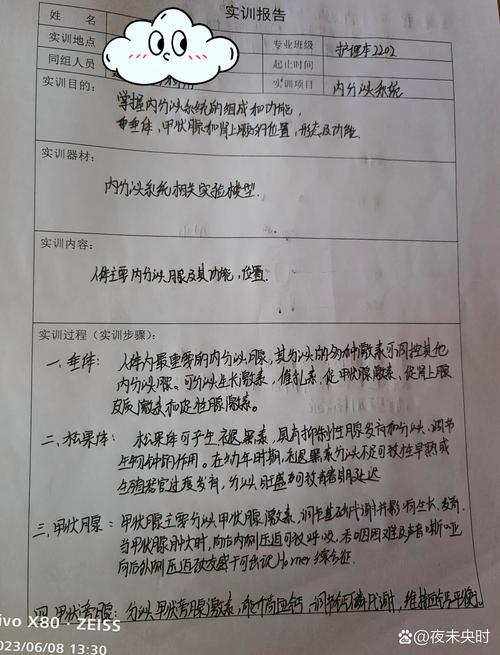 实训报告
姓 名
实训地点
专业班级
护理本2202
同组人员
起止时间
实训目的:
实训项目
内分泌系统
掌握内分泌系统的组成和功能.
垂体,甲状腺和肾上腺的位置,形态及功能.
实训器材:
内分泌系统相关实验模型.
实训内容:
人体主要内分泌腺及其功能,位置.
实训过程(实训步骤):
一.垂体: 人体内最重要的内分泌腺,其分泌的多种激素可调控其他
内分泌腺。可分泌生长激素,催乳素,促甲状腺激素,促肾上腺
皮质激素和促性腺激素。
二.松果体: 松果体可产生褪黑素,具有抑制性腺发育和分泌、调节
生物钟的作用。在幼年时期,褪黑素分泌不足可致性早熟或
生殖器官过度发育,分泌旺盛可致青春期延迟
三.甲状腺:甲状腺主要分泌甲状腺激素,调节基础代谢并影响生长、发育.
当甲状腺肿大时,向内侧压迫可致呼吸,吞咽困难及声音嘶哑
向后外侧压迫交感干可出现Horner综合征.
四.甲状旁腺:分泌甲状旁腺激素,能升高血钙,调节钙磷代谢,维持血钙平衡.
vivo X80 - ZEISS
2023/06/08 13:30
@夜未央时